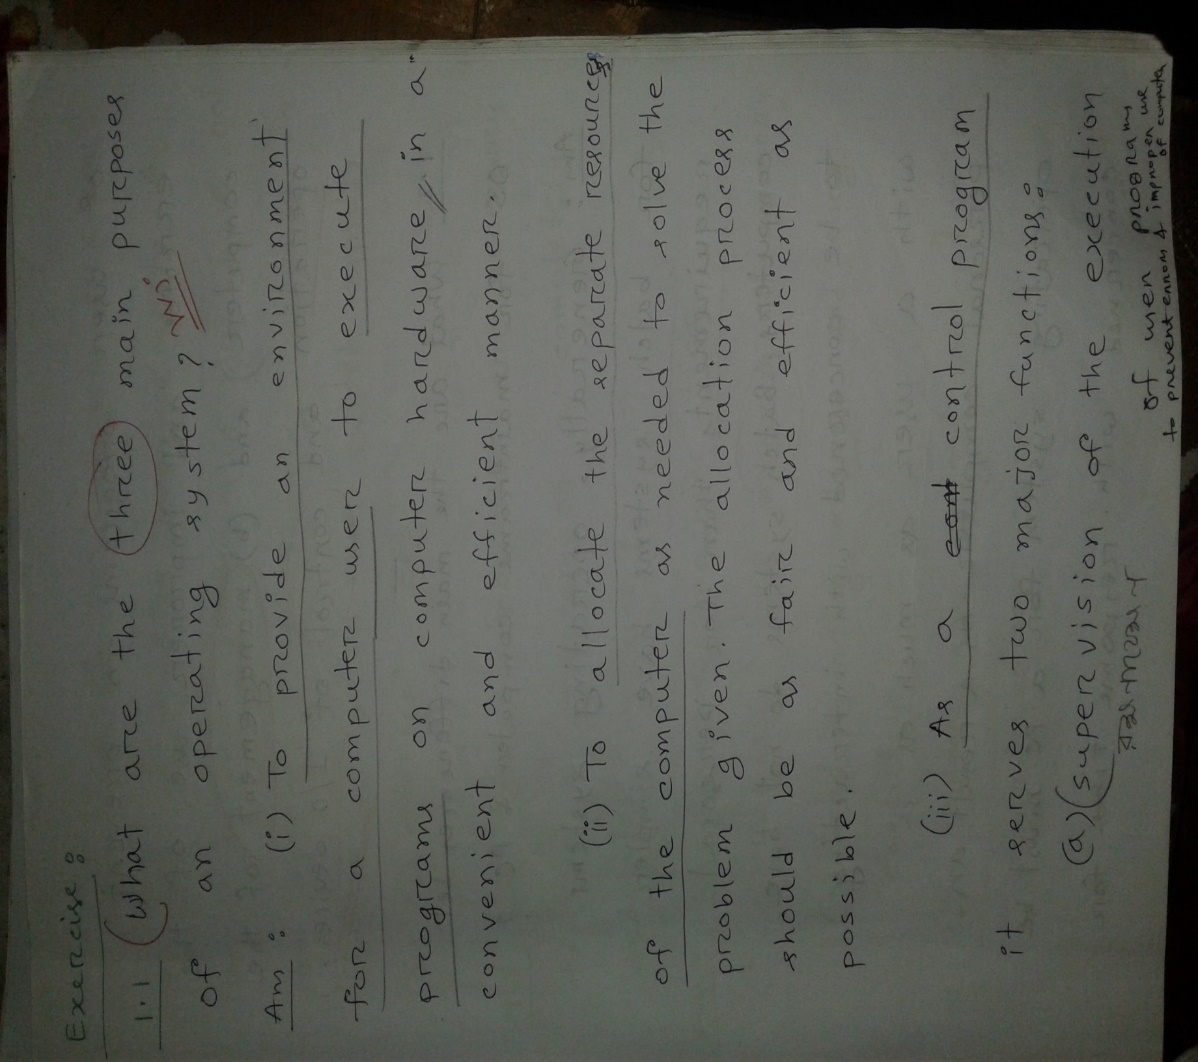 Exercise :
1.1 (What are the three main purposes
of an operating system? VVI
Ans : (i) To provide an environment
for a computer user to execute
programs on computer hardware in a
convenient and efficient manner.
(ii) To allocate the separate resources
of the computer as needed to solve the
problem given. The allocation process
should be as fair and efficient as
possible.
(iii) As a cont control program
it serves two major functions :
(a) (supervision of the execution
of user programs
to prevent errors & improper use
of computer